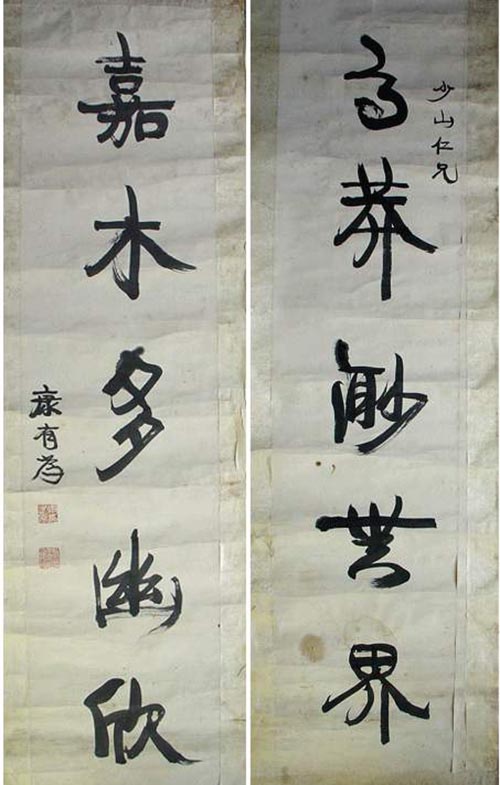 少山仁兄
高莽渺世界
嘉木多幽欣
康有為